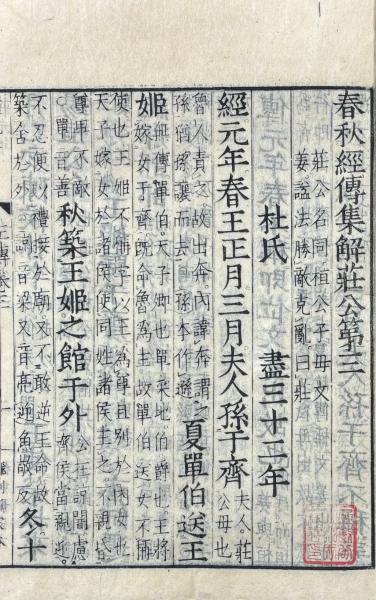 春秋經傳集解莊公第三
莊公名同桓公子母文
姜謚法勝敵克亂曰莊
杜氏 盡三十二年
經元年春王正月三月夫人孫于齊夫人莊
公母也
魯人責之故出奔內諱奔謂之
孫猶孫讓而去孫本作遜
夏單伯送王
姬無傳單伯天子卿也單采地伯爵也王將
嫁女于齊既命魯為主故單伯送女不稱
使也王姬不稱字以王為尊且別於內女也
天子嫁女於諸侯使同姓諸侯主之不親昏
尊卑不敵
單音善
秋築王姬之館于外公在諒闇慮
齊侯當親迎
不忍便以禮接於廟又不敢逆王命故
築舍於外
諒音梁又音亮迎魚敬反
冬十